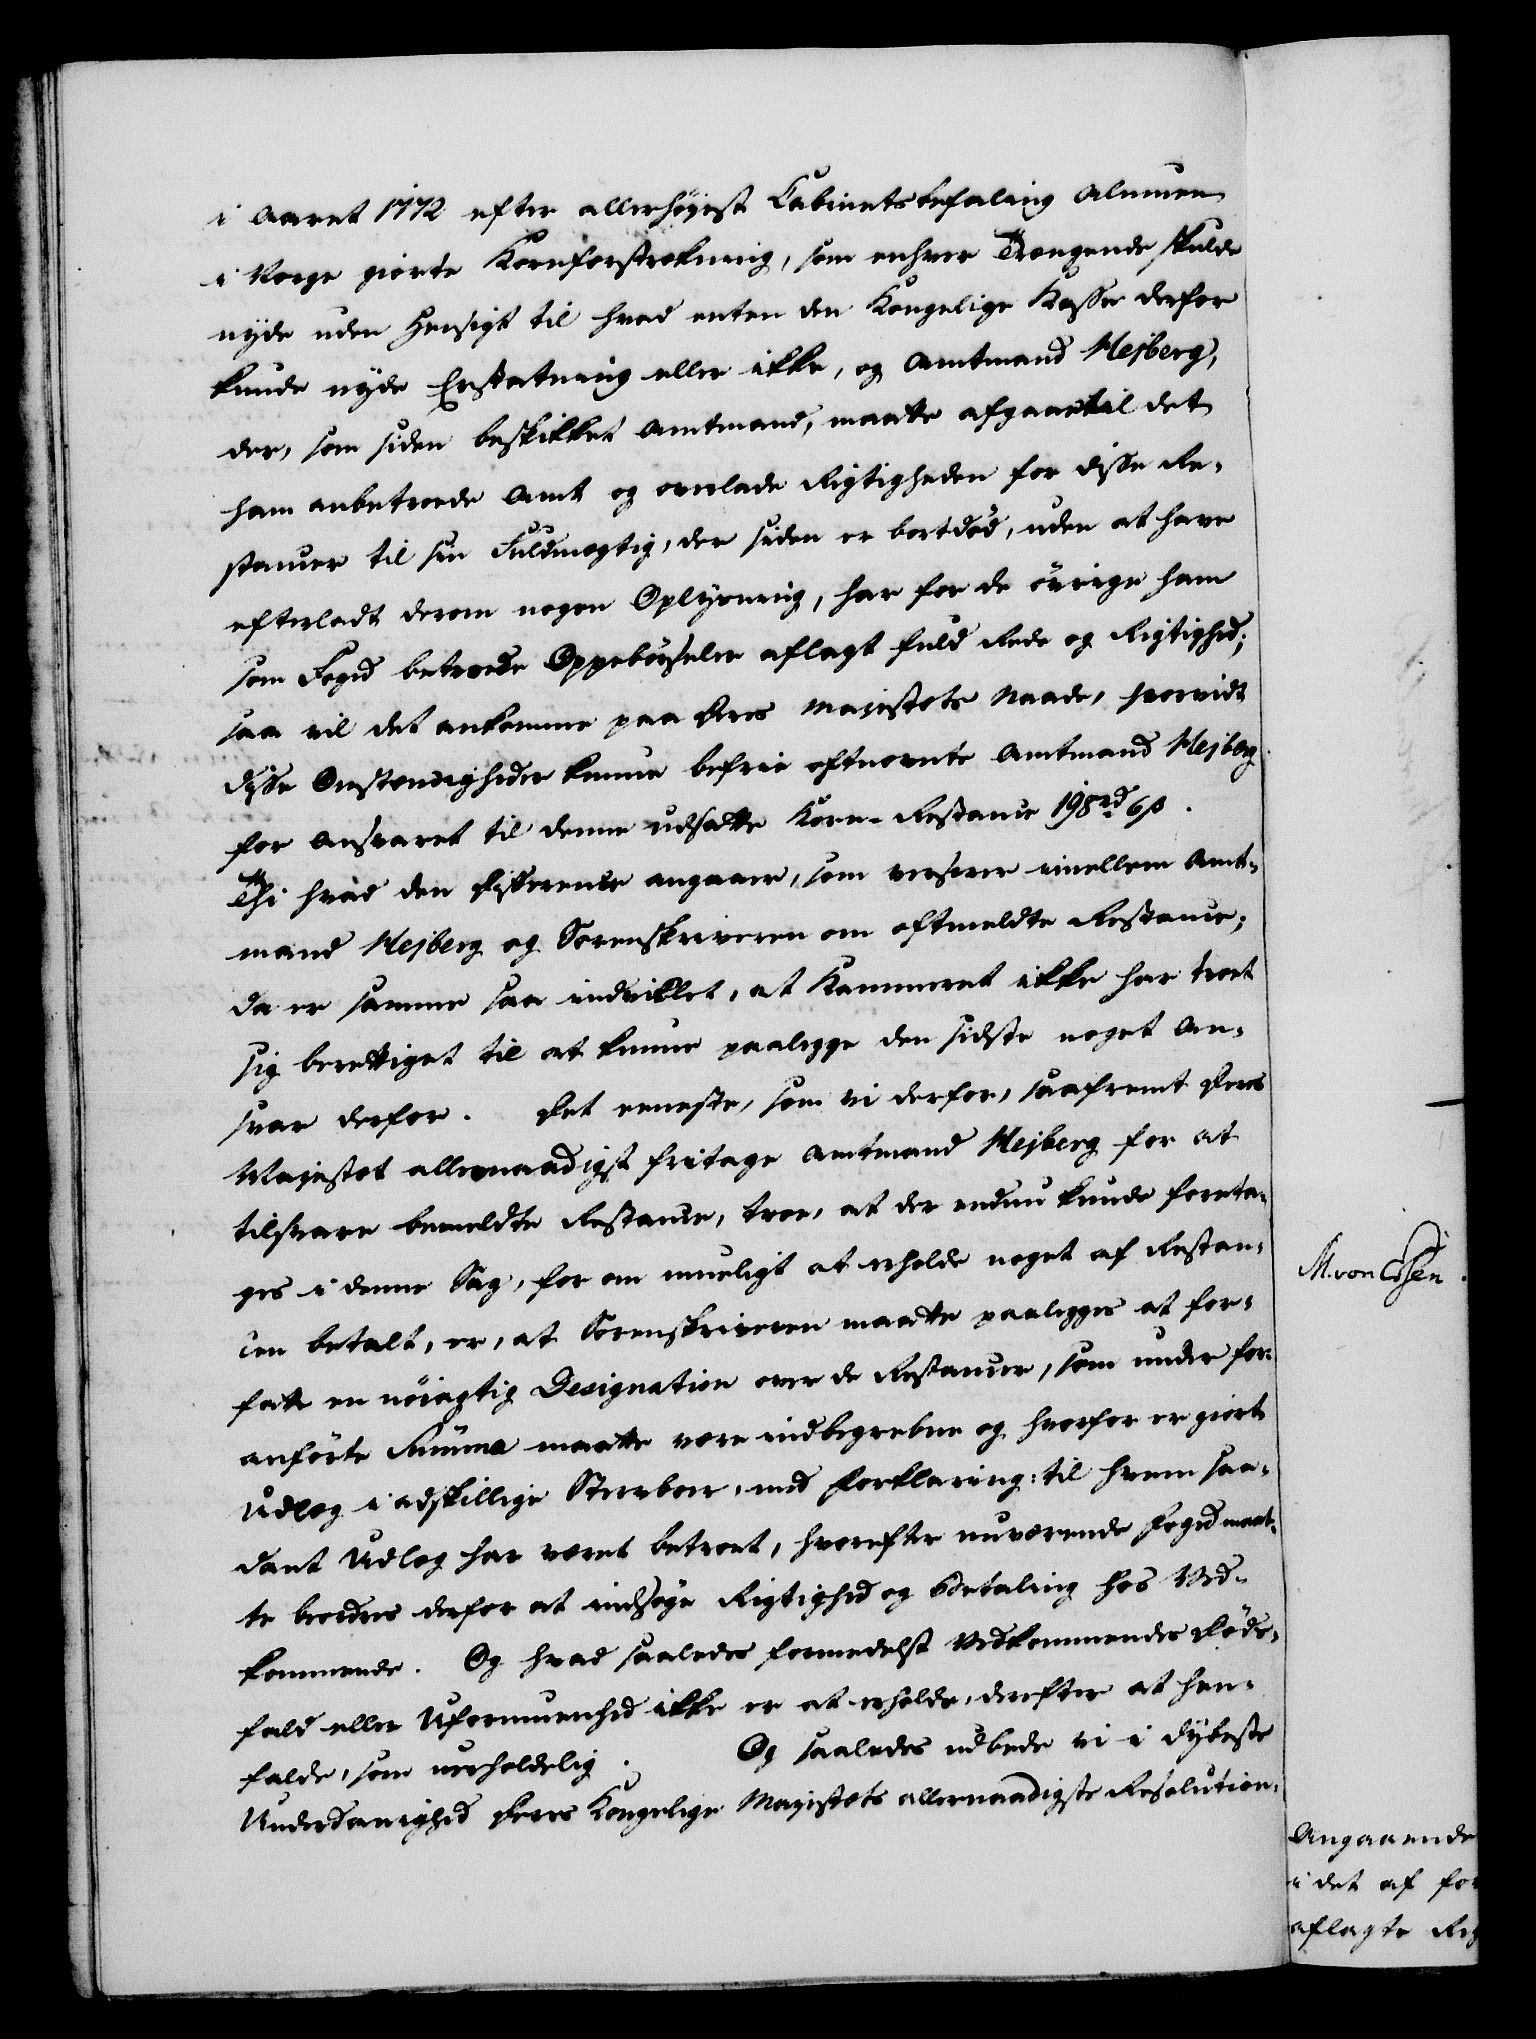 i Aaret 1772 efter allerhøyest Cabinetsbefaling Almuen
i Norge giorte Kornforstrækning, som enhver Trængende skulde
nyde uden Hensigt til hvad enten den Kongelige Kasse derfor
kunde nyde Erstatning eller ikke, og Amtmand Mejberg,
der, som siden beskikket Amtmand, maatte afgaae til det
ham anbetroede Amt og overlade Rigtigheden for disse Re-
stancer til sin Fuldmægtig, der siden er bortdød, uden at have
efterladt derom nogen Oplysning, har for de øvrige ham
som Foged betroede Oppebørseler aflagt fuld Rede og Rigtighed;
saa vil det ankomme paa Deres Majestæts Naade, hvorvidt
disse Omstændigheder kunne befrie oftnævnte Amtmand Mejberg
for Ansvaret til denne udsatte Korn-Restance 198 rd 6 s.
Thi hvad den Difference angaaer, som verserer imellem Amt-
mand Mejberg og Sorenskriveren om oftmeldte Restance;
da er samme saa indviklet, at Kammeret ikke har troet
sig berettiget til at kunne paalegge den sidste noget An-
svar derfor. Det eeneste, som vi derfor, saafremt Deres
Majestæt allernaadigst fritage Amtmand Mejberg for at
tilsvare bemeldte Restance, troe, at der endnu kunde foreta-
ges i denne Sag, for om mueligt at erholde noget af Restan-
cen betalt, er, at Sorenskriveren maatte paalegges at for-
fatte en nøiagtig Designation over de Restancer, som under for-
anførte Summa maatte være indbegrebne og hvorfor er giort
Udlæg i adskillige Sterboer, med Forklaring: til hvem saa-
dant Udlæg har været betroet, hvorefter nuværende Foged maat-
te beordres derfor at indsøge Rigtighed og Betaling hos Ved-
kommende. Og hvad saaledes formedelst Vedkommendes Døds-
fald eller Uformuenhed ikke er at erholde, derefter at hen-
falde, som uerholdelig. Og saaledes udbede vi i dybeste
Underdanighed Deres Kongelige Majestæts allernaadigste Resolution.
M. von Essen.
Angaaende
i det af for
aflagte Reg